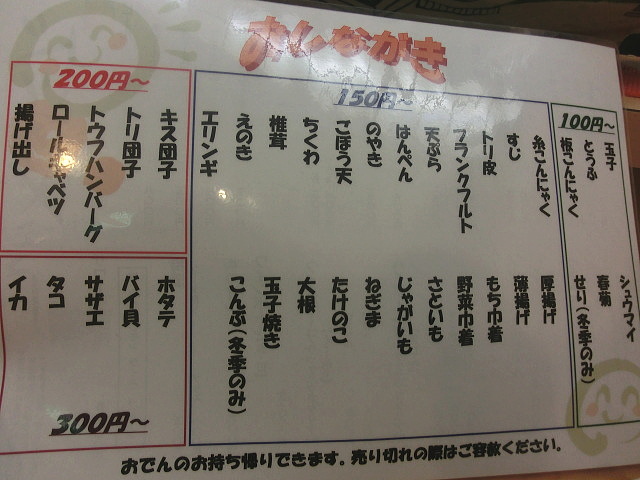 おしながき
100円～
玉子
とうふ
板こんにゃく
シュウマイ
春菊
せり(冬季のみ)
150円～
糸こんにゃく
すじ
トリ皮
フランクフルト
天ぷら
はんぺん
のやき
ごぼう天
ちくわ
椎茸
えのき
エリンギ
厚揚げ
薄揚げ
もち巾着
野菜巾着
さといも
じゃがいも
ねぎま
たけのこ
大根
玉子焼き
こんぶ(冬季のみ)
200円～
キス団子
トリ団子
トウフハンバーグ
ロールキャベツ
揚げ出し
ホタテ
バイ貝
サザエ
タコ
イカ
300円～
おでんのお持ち帰りできます。売り切れの際はご容赦ください。